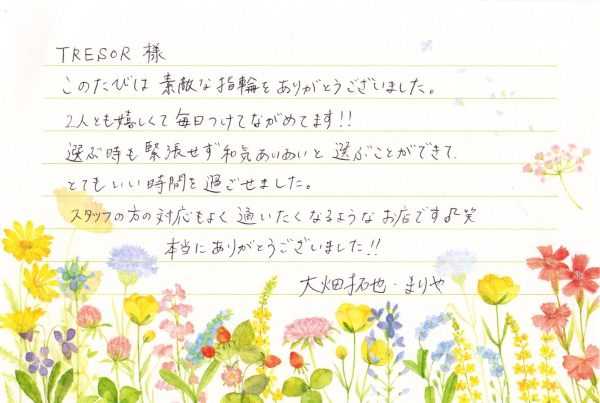 TRESOR 様
このたびは 素敵な指輪をありがとうございました。
2人とも嬉しくて毎日つけてながめてます!!
選ぶ時も緊張せず和気あいあいと選ぶことができて、
とてもいい時間を過ごせました。
スタッフの方の対応もよく通いたくなるようなお店です♫笑
本当にありがとうございました!!
大畑拓也・まりや